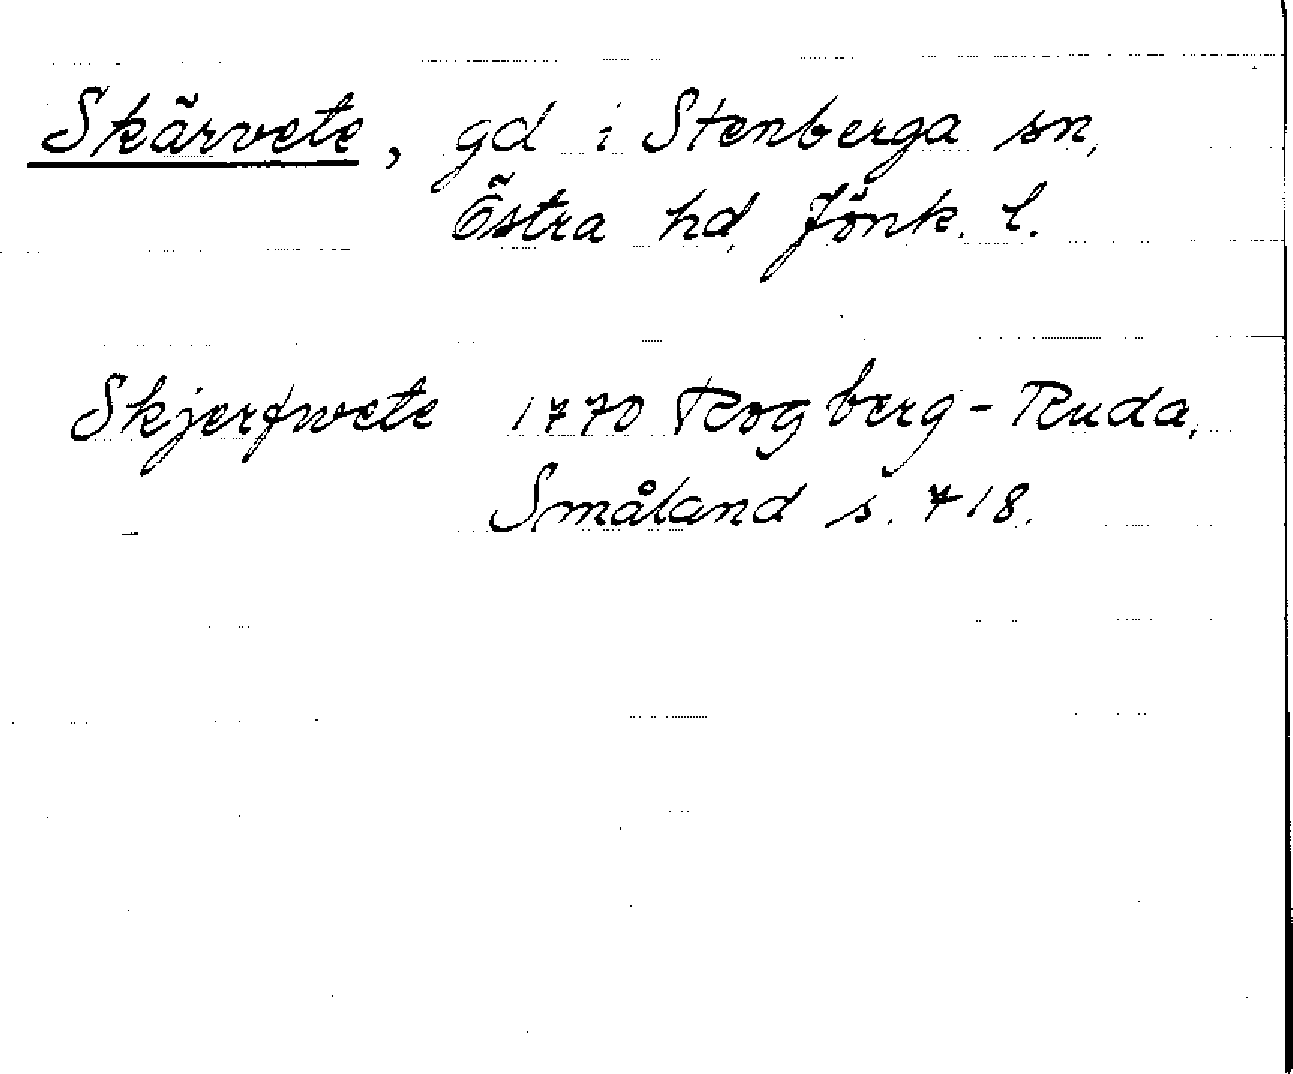 Skärvete, gd i Stenberga sn,
Östra hd, Jönk. l.
Skjerfwete 1770 Rogberg-Ruda,
Småland s. 718.